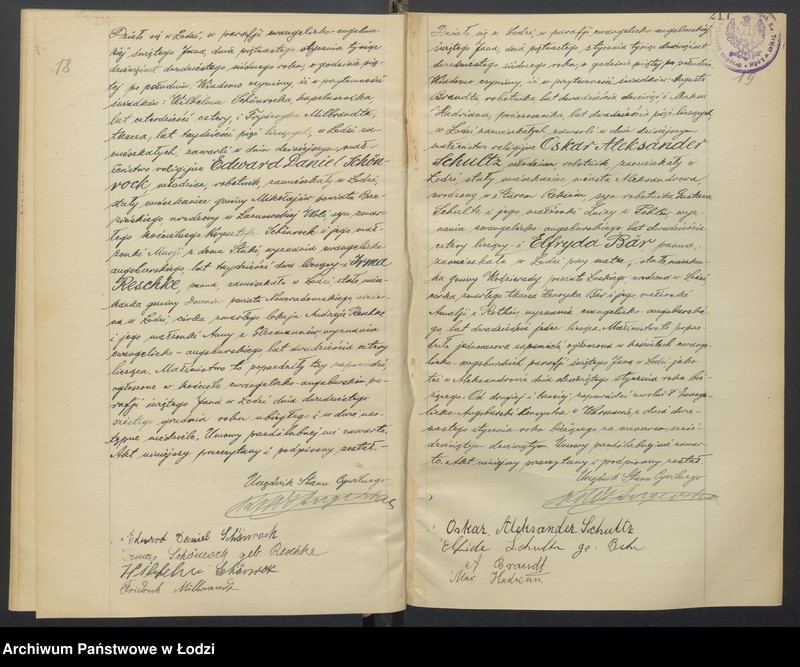 18
Działo się w Łodzi, w parafji ewangelicko-augsbur-
skiej świętego Jana, dnia piętnastego stycznia tysiąc
dziewięćset dwudziestego siódmego roku, o godzinie pią-
tej po południu. Wiadomo czynimy, iż w przytomności
świadków: Wilhelma Schönrocka, kapelusznika,
lat czterdzieści cztery, i Fryderyka Milbrandta,
tkacza, lat trzydzieści pięć liczących, w Łodzi za-
mieszkałych, zawarli w dniu dzisiejszym mał-
żeństwo religijne Edward Daniel Schön-
rock, młodzian, robotnik, zamieszkały w Łodzi,
stały mieszkaniec gminy Mikołajów powiatu Brze-
zińskiego urodzony w Łaznowskiej Woli, syn zmar-
łego Augusta Schönrock i jego mał-
żonki Marji z domu wyznania ewangelicko-
augsburskiego lat trzydzieści dwa liczący i Irma
Reschke, panna, zamieszkała w Łodzi, stała miesz-
kanka gminy powiatu Noworadomskiego urodzo-
na w Łodzi, córka zmarłego Reschke
i jego małżonki Anny z wyznania
ewangelicko-augsburskiego lat dwadzieścia cztery
licząca. Małżeństwo to poprzedziły trzy zapowiedzi,
ogłoszone w kościele ewangelicko-augsburskim pa-
rafji świętego Jana w Łodzi dnia dwudziestego
szóstego grudnia roku ubiegłego i w dwie nas-
tępne niedziele. Umowy przedślubnej nie zawarto.
Akt niniejszy przeczytany i podpisany został.-
Urzędnik Stanu Cywilnego
Edward Daniel Schönrock
Irma Schönrock geb. Reschke
Wilhelm Schönrock
Friedrich Milbrandt
217
19
Działo się w Łodzi, w parafji ewangelicko-augsburskiej
świętego Jana, dnia piętnastego stycznia tysiąc dziewięćset
dwudziestego siódmego roku, o godzinie piątej po południu.
Wiadomo czynimy, iż w przytomności świadków: Augusta
Brandta robotnika, lat dwadzieścia dziewięć i Maksa
Hadriana, lat dwadzieścia pięć liczących,
w Łodzi zamieszkałych, zawarli w dniu dzisiejszym
małżeństwo religijne Oskar Aleksander
Schultz młodzian, robotnik, zamieszkały w
Łodzi, stały mieszkaniec miasta Aleksandrowa
urodzony w syn robotnika Gustawa
Schultz i jego małżonki z wyz-
nania ewangelicko-augsburskiego, lat dwadzieścia
cztery liczący i Elfryda Bär panna,
zamieszkała w Łodzi przy matce, stała mieszkan-
ka gminy powiatu Łaskiego, urodzona w Łodzi
córka zmarłego tkacza Henryka Bär i jego małżonki
Amalji z wyznania ewangelicko-augsburskie-
go lat dwadzieścia jeden licząca. Małżeństwo to poprze-
dziła jednorazowa zapowiedź ogłoszona w kościołach ewange-
licko-augsburskich parafji świętego Jana w Łodzi jako-
też w Aleksandrowie dnia dziewiątego stycznia roku bie-
żącego. Od drugiej i trzeciej zapowiedzi zwolnił Ewange-
licko-Augsburski Konsystorz w Warszawie z dnia dwu-
nastego stycznia roku bieżącego za numerem sześć-
dziesiątym dziewiątym. Umowy przedślubnej nie zawar-
to. Akt niniejszy przeczytany i podpisany został.
Urzędnik Stanu Cywilnego
Oskar Aleksander Schultz
Elfride Schultz ge. Behr
A. Brandt
Max Hadrian
Archiwum Państwowe w Łodzi